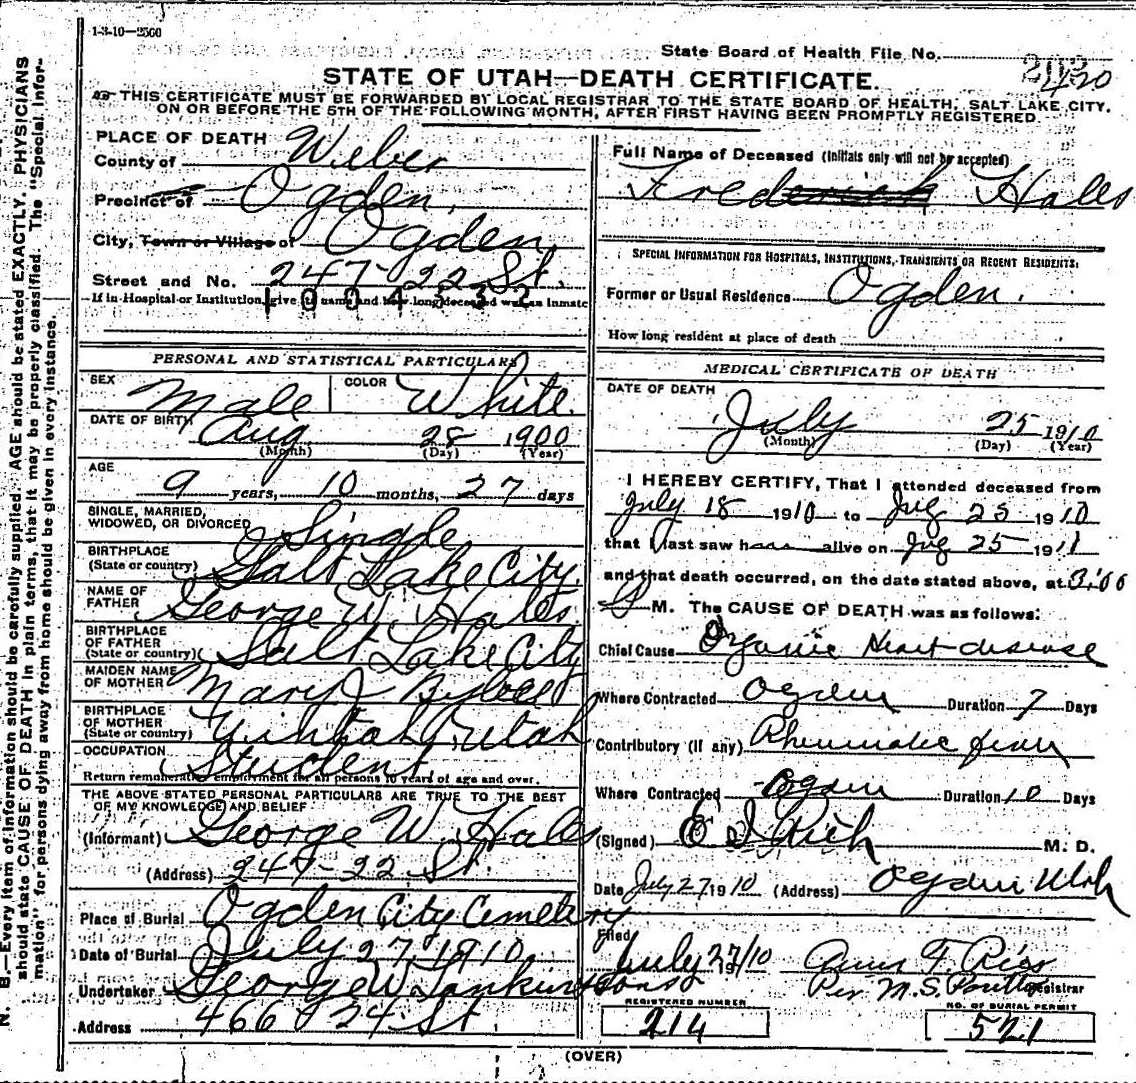 1-3-10-2560
State Board of Health File No.
STATE OF UTAH—DEATH CERTIFICATE.
THIS CERTIFICATE MUST BE FORWARDED BY LOCAL REGISTRAR TO THE STATE BOARD OF HEALTH, SALT LAKE CITY,
ON OR BEFORE THE 5TH OF THE FOLLOWING MONTH, AFTER FIRST HAVING BEEN PROMPTLY REGISTERED.
PLACE OF DEATH
County of Weber
Precinct of Ogden,
City, Town or Village of Ogden,
Street and No. 247-22 St.
If in Hospital or Institution, give name and how long deceased was an inmate
1034532
PERSONAL AND STATISTICAL PARTICULARS
SEX Male COLOR White.
DATE OF BIRTH Aug 28 1900
(Month) (Day) (Year)
AGE
9 years, 10 months, 27 days
SINGLE, MARRIED,
WIDOWED, OR DIVORCED Single
BIRTHPLACE
(State or country) Salt Lake City.
NAME OF
FATHER George W. Hales
BIRTHPLACE
OF FATHER
(State or country) Salt Lake City
MAIDEN NAME
OF MOTHER Mary J
BIRTHPLACE
OF MOTHER
(State or country) Uintah, Utah
OCCUPATION Student
Return remunerative employment for all persons 10 years of age and over.
THE ABOVE STATED PERSONAL PARTICULARS ARE TRUE TO THE BEST
OF MY KNOWLEDGE AND BELIEF
(Informant) George W. Hales
(Address) 247-22 St.
Place of Burial Ogden City Cemetery
Date of Burial July 27, 1910
Undertaker George W Larkin & Sons
Address 466 24 St
Full Name of Deceased (Initials only will not be accepted)
Frederick Hales
SPECIAL INFORMATION FOR HOSPITALS, INSTITUTIONS, TRANSIENTS OR RECENT RESIDENTS:
Former or Usual Residence Ogden.
How long resident at place of death
MEDICAL CERTIFICATE OF DEATH
DATE OF DEATH
July 25 1910
(Month) (Day) (Year)
I HEREBY CERTIFY, That I attended deceased from
July 18 1910 to July 25 1910
that I last saw h alive on July 25 191
and that death occurred, on the date stated above, at 3:00
M. The CAUSE OF DEATH was as follows:
Chief Cause Organic Heart disease
Where Contracted Ogden Duration 7 Days
Contributory (if any) Rheumatic fever
Where Contracted Ogden Duration 10 Days
(Signed) E I Rich M. D.
Date July 27 1910 (Address) Ogden Utah
Filed
July 27/10
Per M.S. Registrar
REGISTERED NUMBER
214
NO. OF BURIAL PERMIT
521
(OVER)
N. B.—Every item of information should be carefully supplied. AGE should be stated EXACTLY. PHYSICIANS
should state CAUSE OF DEATH in plain terms, that it may be properly classified. The "Special Infor-
mation" for persons dying away from home should be given in every instance.